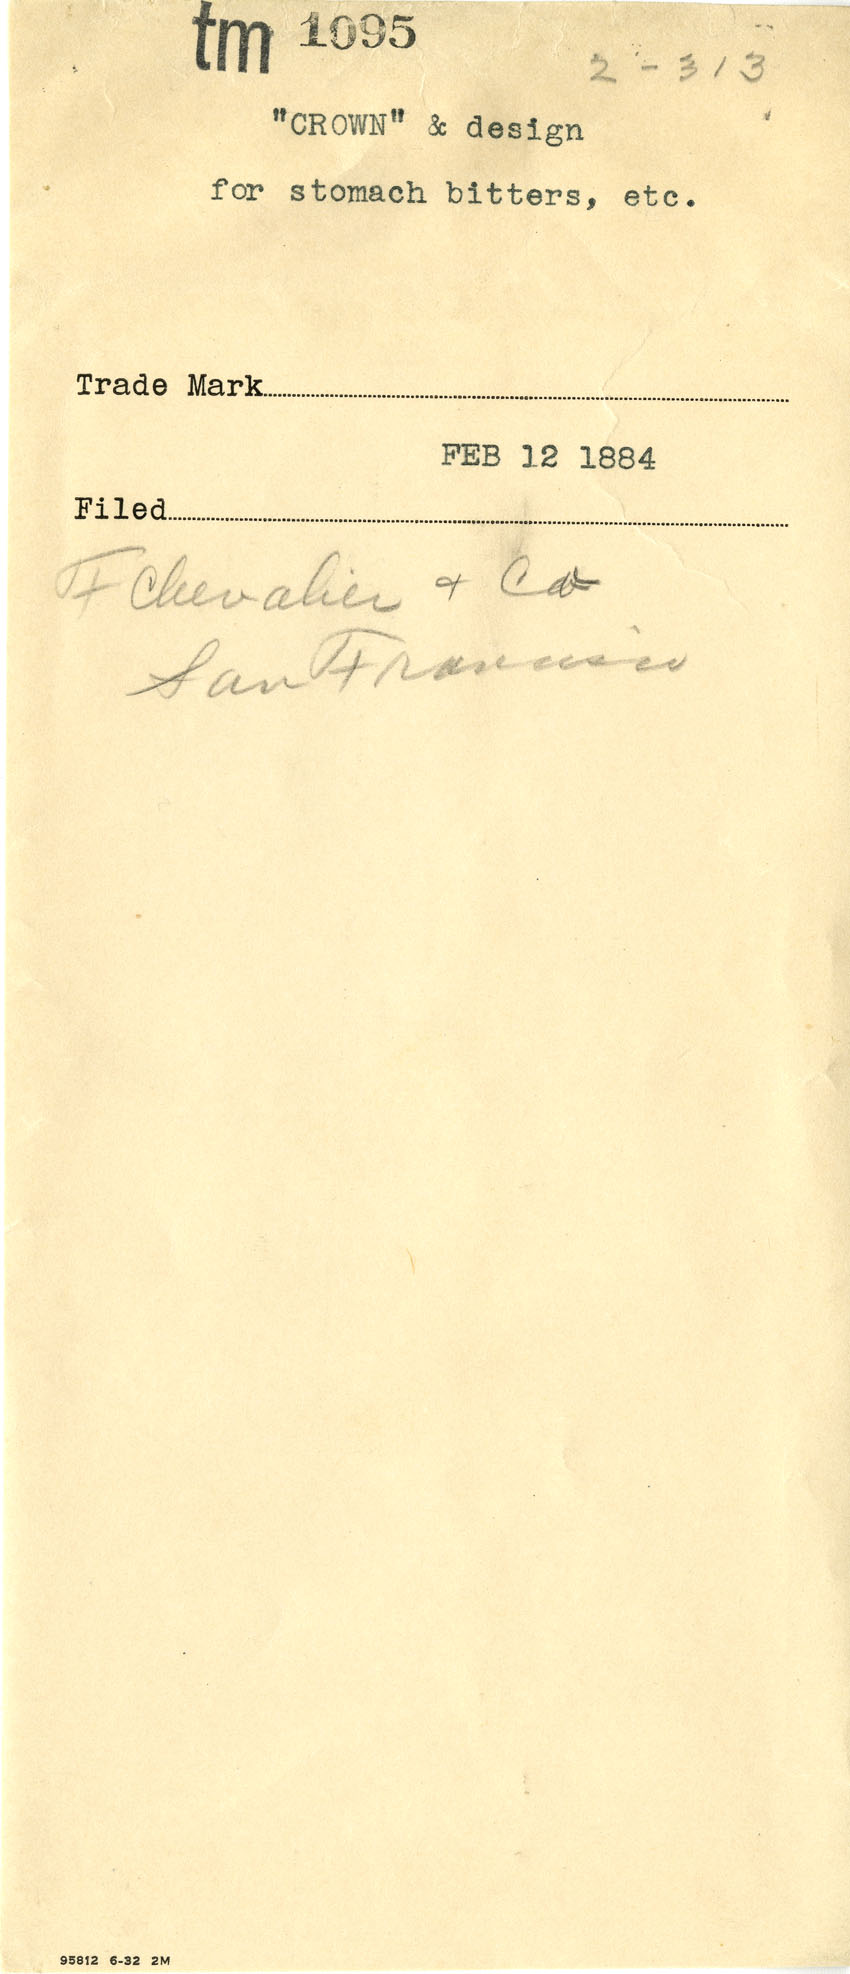 tm 1095
2-313
"CROWN" & design
for stomach bitters, etc.
Trade Mark
FEB 12 1884
Filed
F Chevalier + Co
San Francisco
95812 6-32 2M